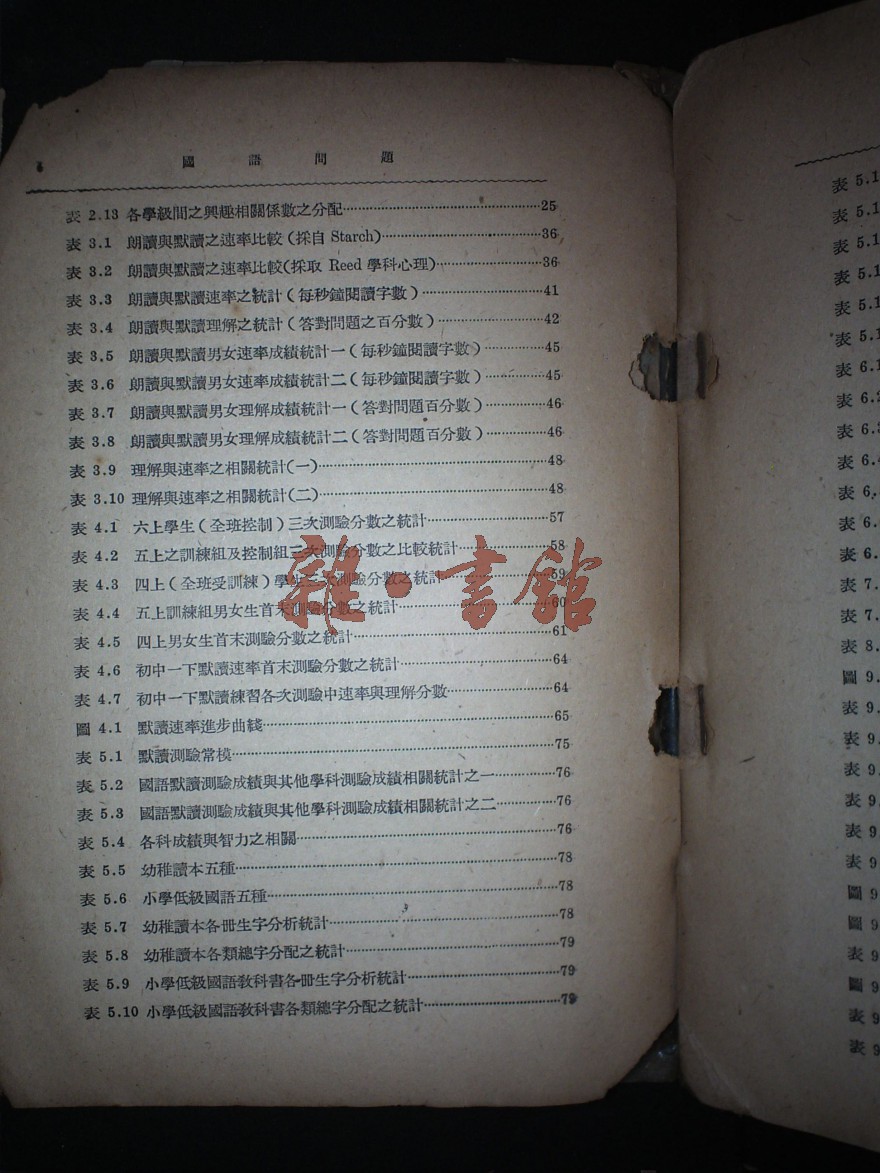 國語問題
表 2.13 各學級間之興趣相關係數之分配……25
表 3.1 朗讀與默讀之速率比較(採自 Starch)……36
表 3.2 朗讀與默讀之速率比較(採取 Reed 學科心理)……36
表 3.3 朗讀與默讀速率之統計(每秒鐘閱讀字數)……41
表 3.4 朗讀與默讀理解之統計(答對問題之百分數)……42
表 3.5 朗讀與默讀男女速率成績統計一(每秒鐘閱讀字數)……45
表 3.6 朗讀與默讀男女速率成績統計二(每秒鐘閱讀字數)……45
表 3.7 朗讀與默讀男女理解成績統計一(答對問題百分數)……46
表 3.8 朗讀與默讀男女理解成績統計二(答對問題百分數)……46
表 3.9 理解與速率之相關統計(一)……48
表 3.10 理解與速率之相關統計(二)……48
表 4.1 六上學生(全班控制)三次測驗分數之統計……57
表 4.2 五上之訓練組及控制組三次測驗分數之比較統計……58
表 4.3 四上(全班受訓練)學生三次測驗分數之統計……59
表 4.4 五上訓練組男女生首末測驗分數之統計……60
表 4.5 四上男女生首末測驗分數之統計……61
表 4.6 初中一下默讀速率首末測驗分數之統計……64
表 4.7 初中一下默讀練習各次測驗中速率與理解分數……64
圖 4.1 默讀速率進步曲綫……65
表 5.1 默讀測驗常模……75
表 5.2 國語默讀測驗成績與其他學科測驗成績相關統計之一……76
表 5.3 國語默讀測驗成績與其他學科測驗成績相關統計之二……76
表 5.4 各科成績與智力之相關……76
表 5.5 幼稚讀本五種……78
表 5.6 小學低級國語五種……78
表 5.7 幼稚讀本各冊生字分析統計……78
表 5.8 幼稚讀本各類總字分配之統計……79
表 5.9 小學低級國語敎科書各冊生字分析統計……79
表 5.10 小學低級國語敎科書各類總字分配之統計……79
雜·書館
表 5.1
表 5.1
表 5.1
表 5.1
表 5.1
表 5.1
表 6.1
表 6.2
表 6.3
表 6.4
表 6.
表 6.
表 6.
表 7.
表 7.
表 8.
圖 9.
表 9.
表 9.
表 9
表 9
表 9
表 9
圖 9
圖 9
表 9
圖 9
表 9
表 9